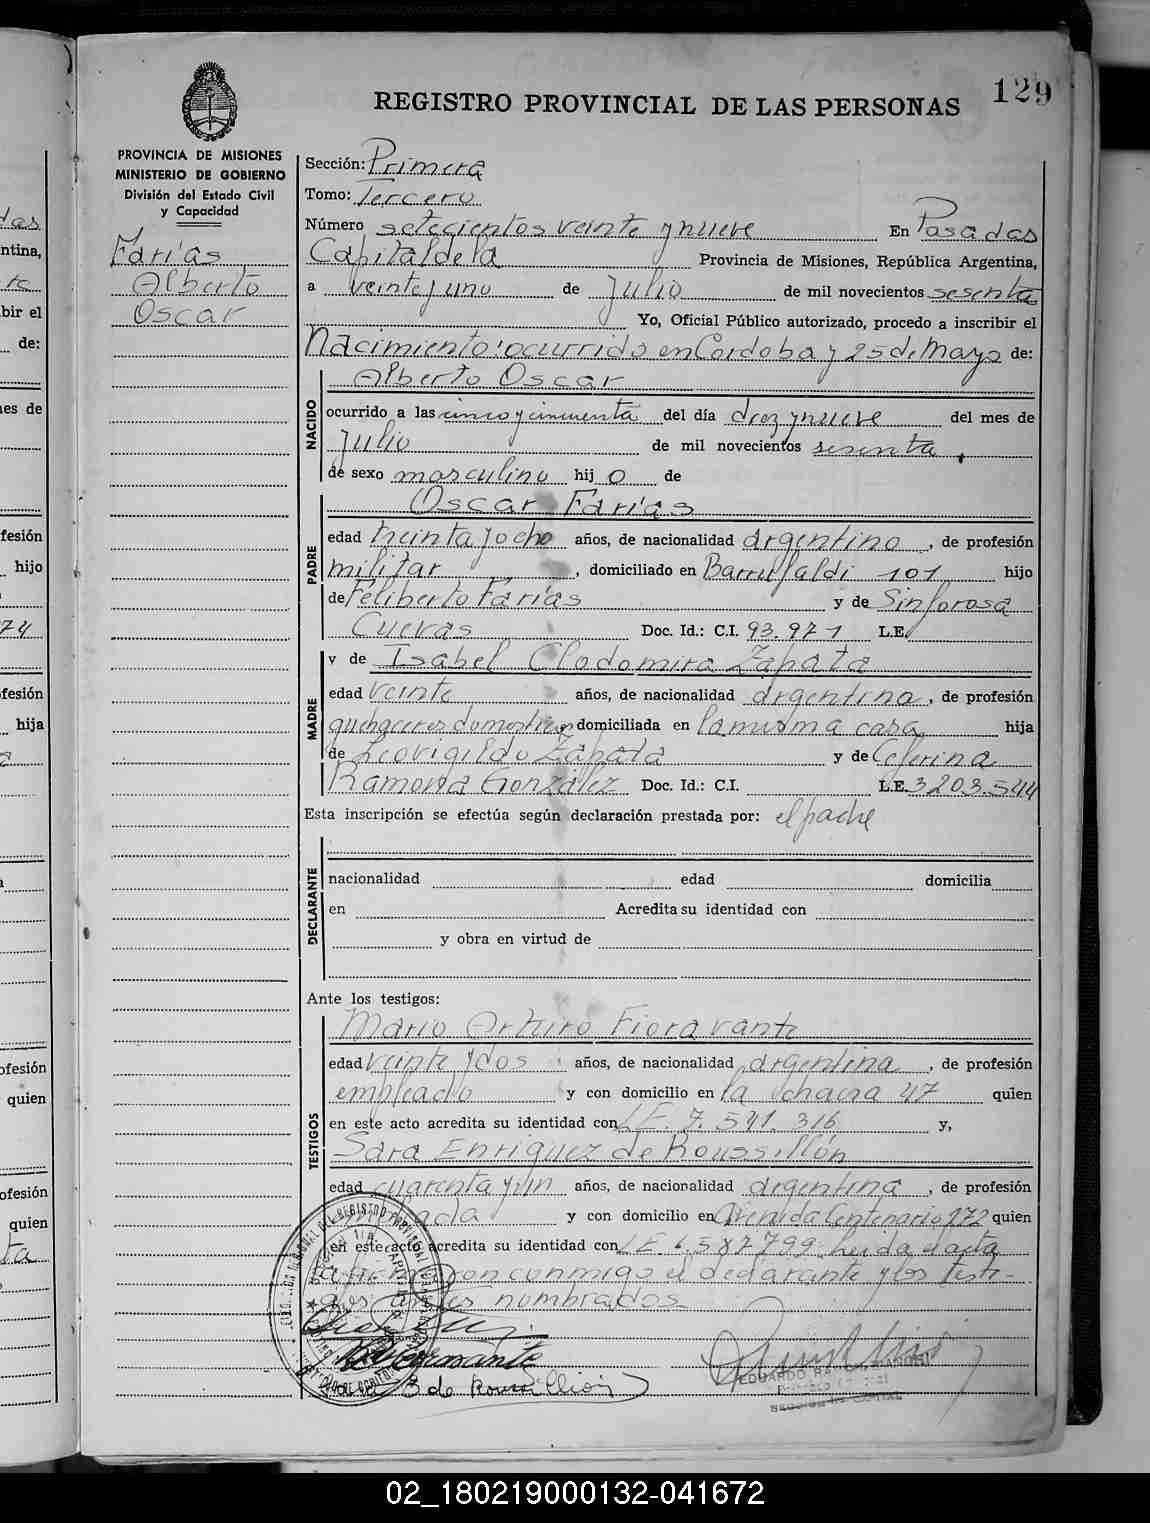 129
REGISTRO PROVINCIAL DE LAS PERSONAS
PROVINCIA DE MISIONES
MINISTERIO DE GOBIERNO
División del Estado Civil
y Capacidad
Farías
Alberto
Oscar
Sección: Primera
Tomo: Tercero
Número setecientos veinte y nueve En Posadas
Capital de la Provincia de Misiones, República Argentina,
a veinte y uno de Julio de mil novecientos sesenta
Yo, Oficial Público autorizado, procedo a inscribir el
Nacimiento: ocurrido en Córdoba y 25 de Mayo de:
NACIDO
Alberto Oscar
ocurrido a las cinco y cincuenta del día diez y nueve del mes de
Julio de mil novecientos sesenta.
de sexo masculino hijo de
PADRE
Oscar Farías
edad treinta y ocho años, de nacionalidad argentino, de profesión
militar, domiciliado en Barrufaldi 101 hijo
de Feliberto Farías y de Sinforosa
Cuevas Doc. Id.: C.I. 93.971 L.E.
MADRE
y de Isabel Clodomira Zapata
edad veinte años, de nacionalidad argentina, de profesión
quehaceres domésticos domiciliada en la misma casa hija
de Leovigildo Zapata y de Ceferina
Ramona González Doc. Id.: C.I. L.E. 3203.544
Esta inscripción se efectúa según declaración prestada por: el padre
DECLARANTE
nacionalidad edad domicilia
en Acredita su identidad con
y obra en virtud de
Ante los testigos:
TESTIGOS
Mario Arturo Fioravante
edad veinte y dos años, de nacionalidad argentina, de profesión
empleado y con domicilio en la chacra 47 quien
en este acto acredita su identidad con L.E. 7.541.316 y,
Sara Enriquez de Roussillón
edad cuarenta y un años, de nacionalidad argentina, de profesión
y con domicilio en Avenida Centenario 172 quien
en este acto acredita su identidad con L.E. 6.587799. Leída el acta
la firman con conmigo el declarante y los testi-
gos antes nombrados.
Fioravante
S de Roussillión
EDUARDO
02_180219000132-041672